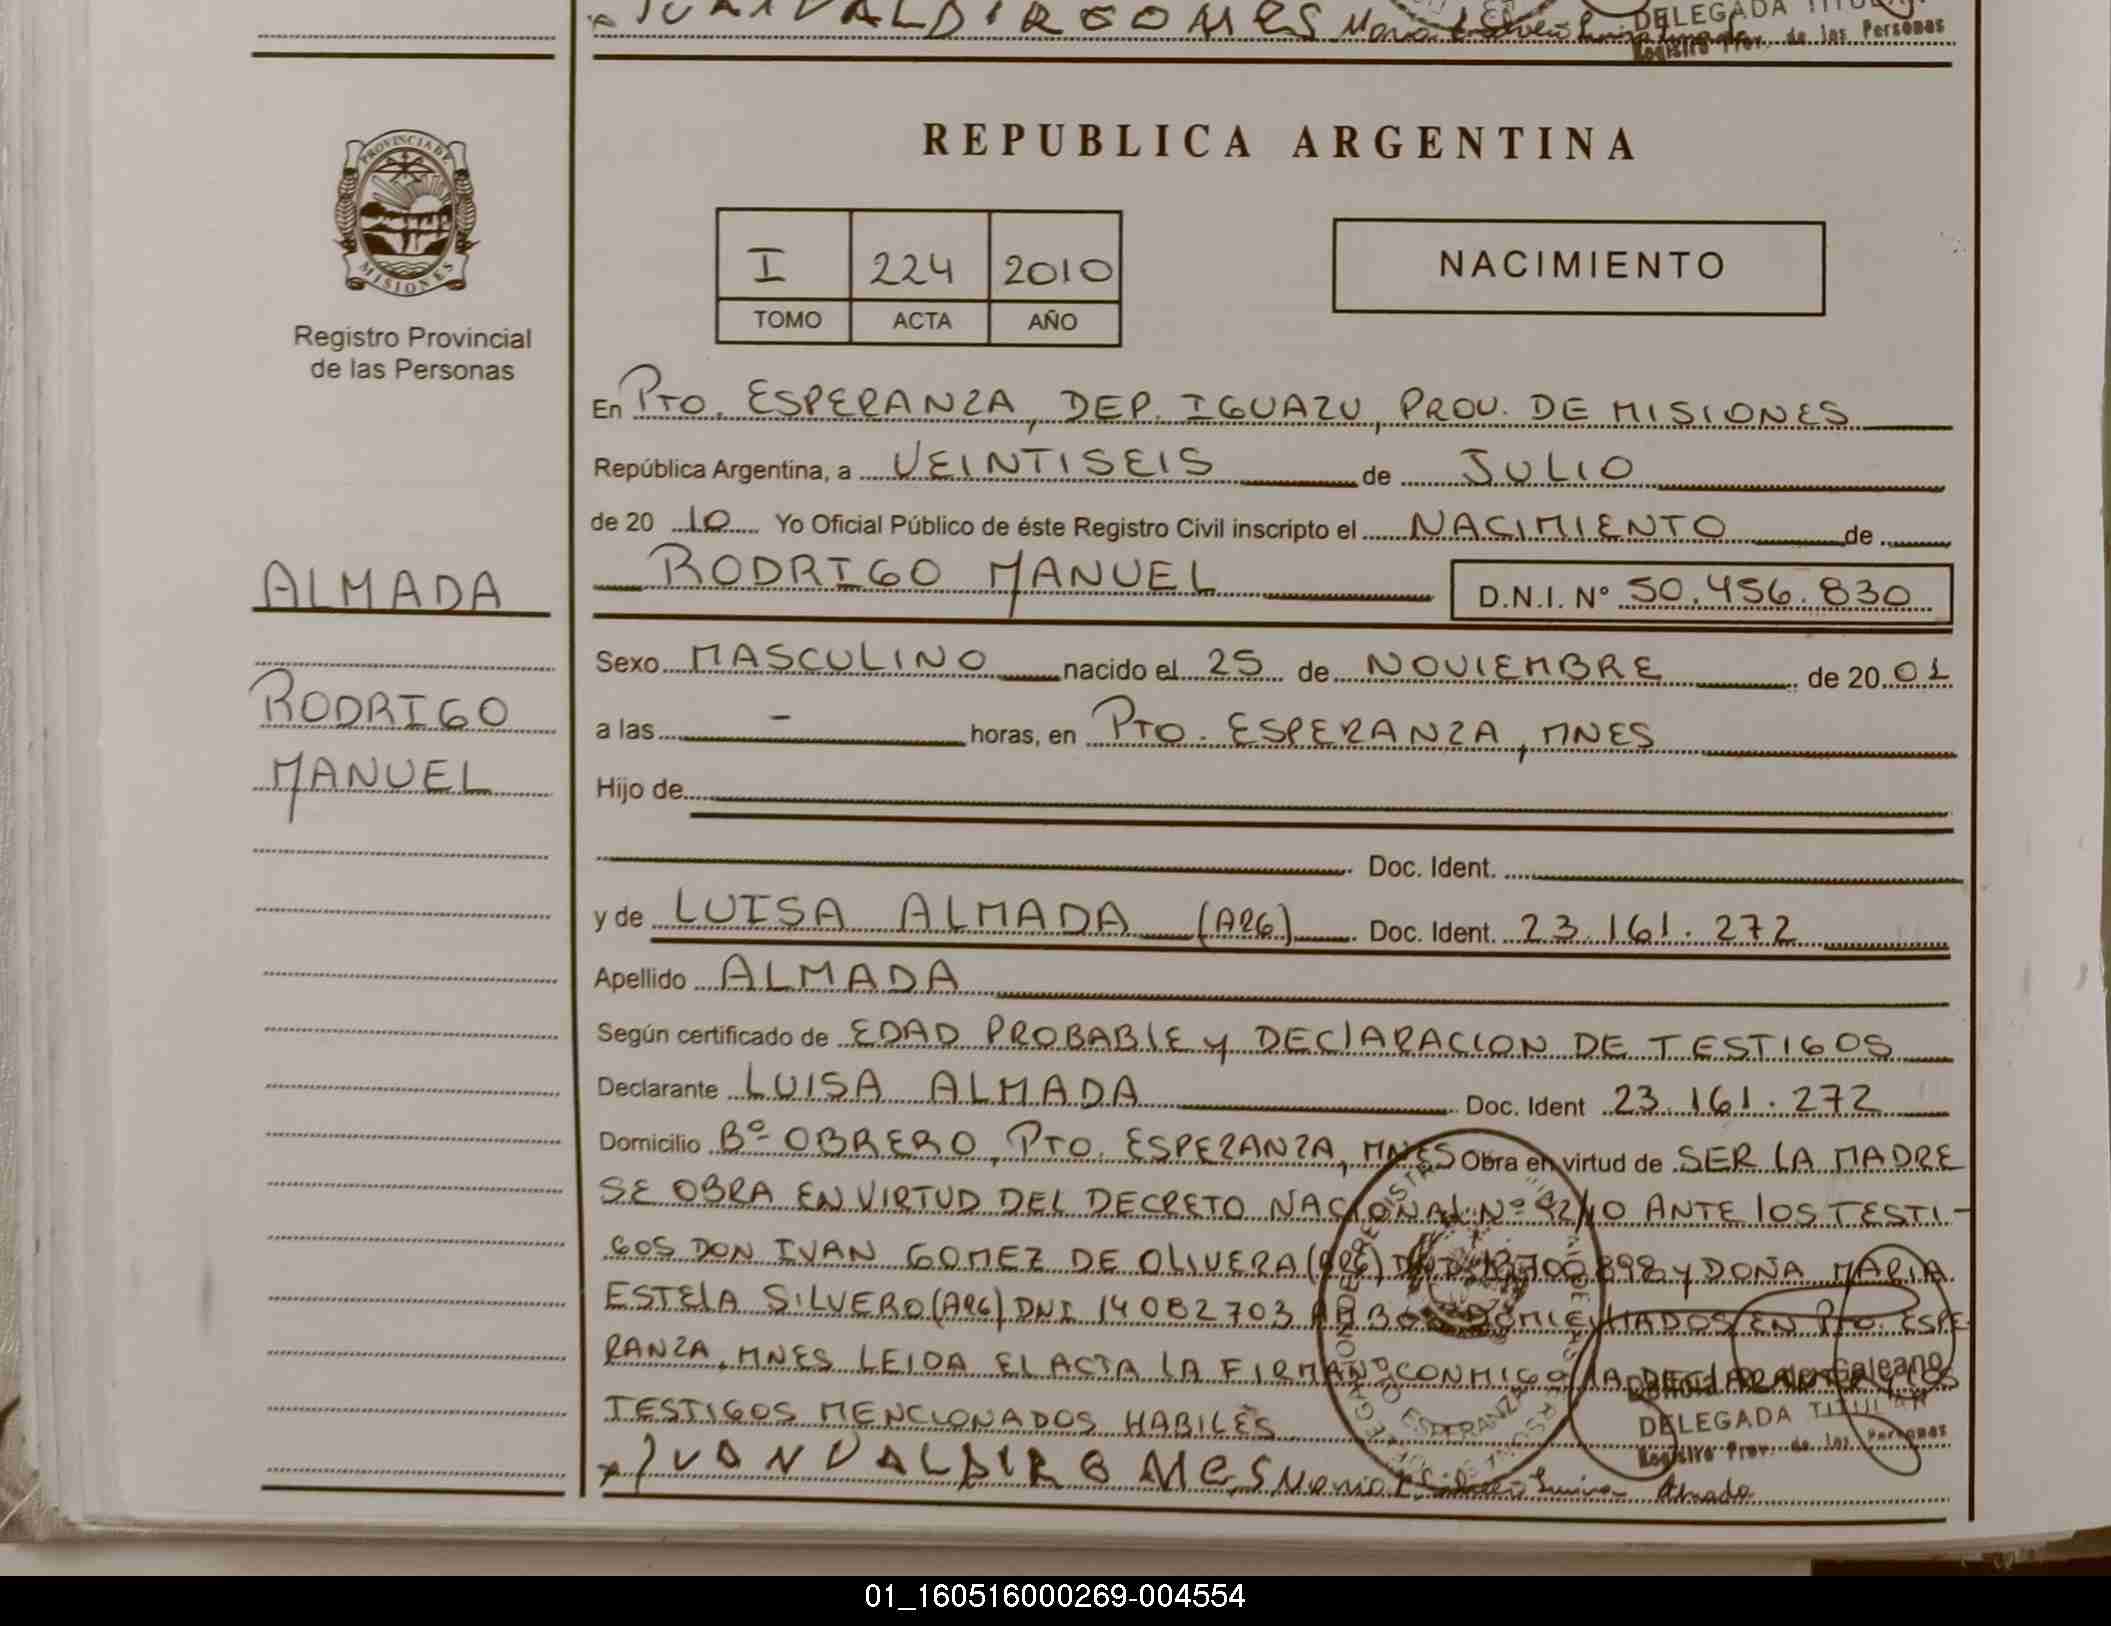 DELEGADA TITU
Registro Prov. de las Personas
PROVINCIA DE
MISIONES
Registro Provincial
de las Personas
REPUBLICA ARGENTINA
I 224 2010
TOMO ACTA AÑO
NACIMIENTO
En PTO. ESPERANZA, DEP. IGUAZU, PROV. DE MISIONES
República Argentina, a VEINTISEIS de JULIO
de 20 10 Yo Oficial Público de éste Registro Civil inscripto el NACIMIENTO de
RODRIGO MANUEL D.N.I. Nº 50.456.830
ALMADA
RODRIGO
MANUEL
Sexo MASCULINO nacido el 25 de NOVIEMBRE de 20 01
a las - horas, en PTO. ESPERANZA, MNES
Hijo de
Doc. Ident.
y de LUISA ALMADA (ARG) Doc. Ident. 23.161.272
Apellido ALMADA
Según certificado de EDAD PROBABLE y DECLARACION DE TESTIGOS
Declarante LUISA ALMADA Doc. Ident 23.161.272
Domicilio Bº OBRERO, PTO. ESPERANZA, MNES Obra en virtud de SER LA MADRE
SE OBRA EN VIRTUD DEL DECRETO NACIONAL Nº 92/10 ANTE LOS TESTI-
GOS DON IVAN GOMEZ DE OLIVERA (ARG) y DOÑA MARIA
ESTELA SILVERO (ARG) DNI 14082703 DOMICILIADOS EN PTO. ESPE-
RANZA, MNES LEIDA EL ACTA LA FIRMAN CONMIGO LA DECLARANTE y LOS
TESTIGOS MENCIONADOS HABILES
Galeano
DELEGADA TITULAR
Registro Prov. de las Personas
Almada
01_160516000269-004554